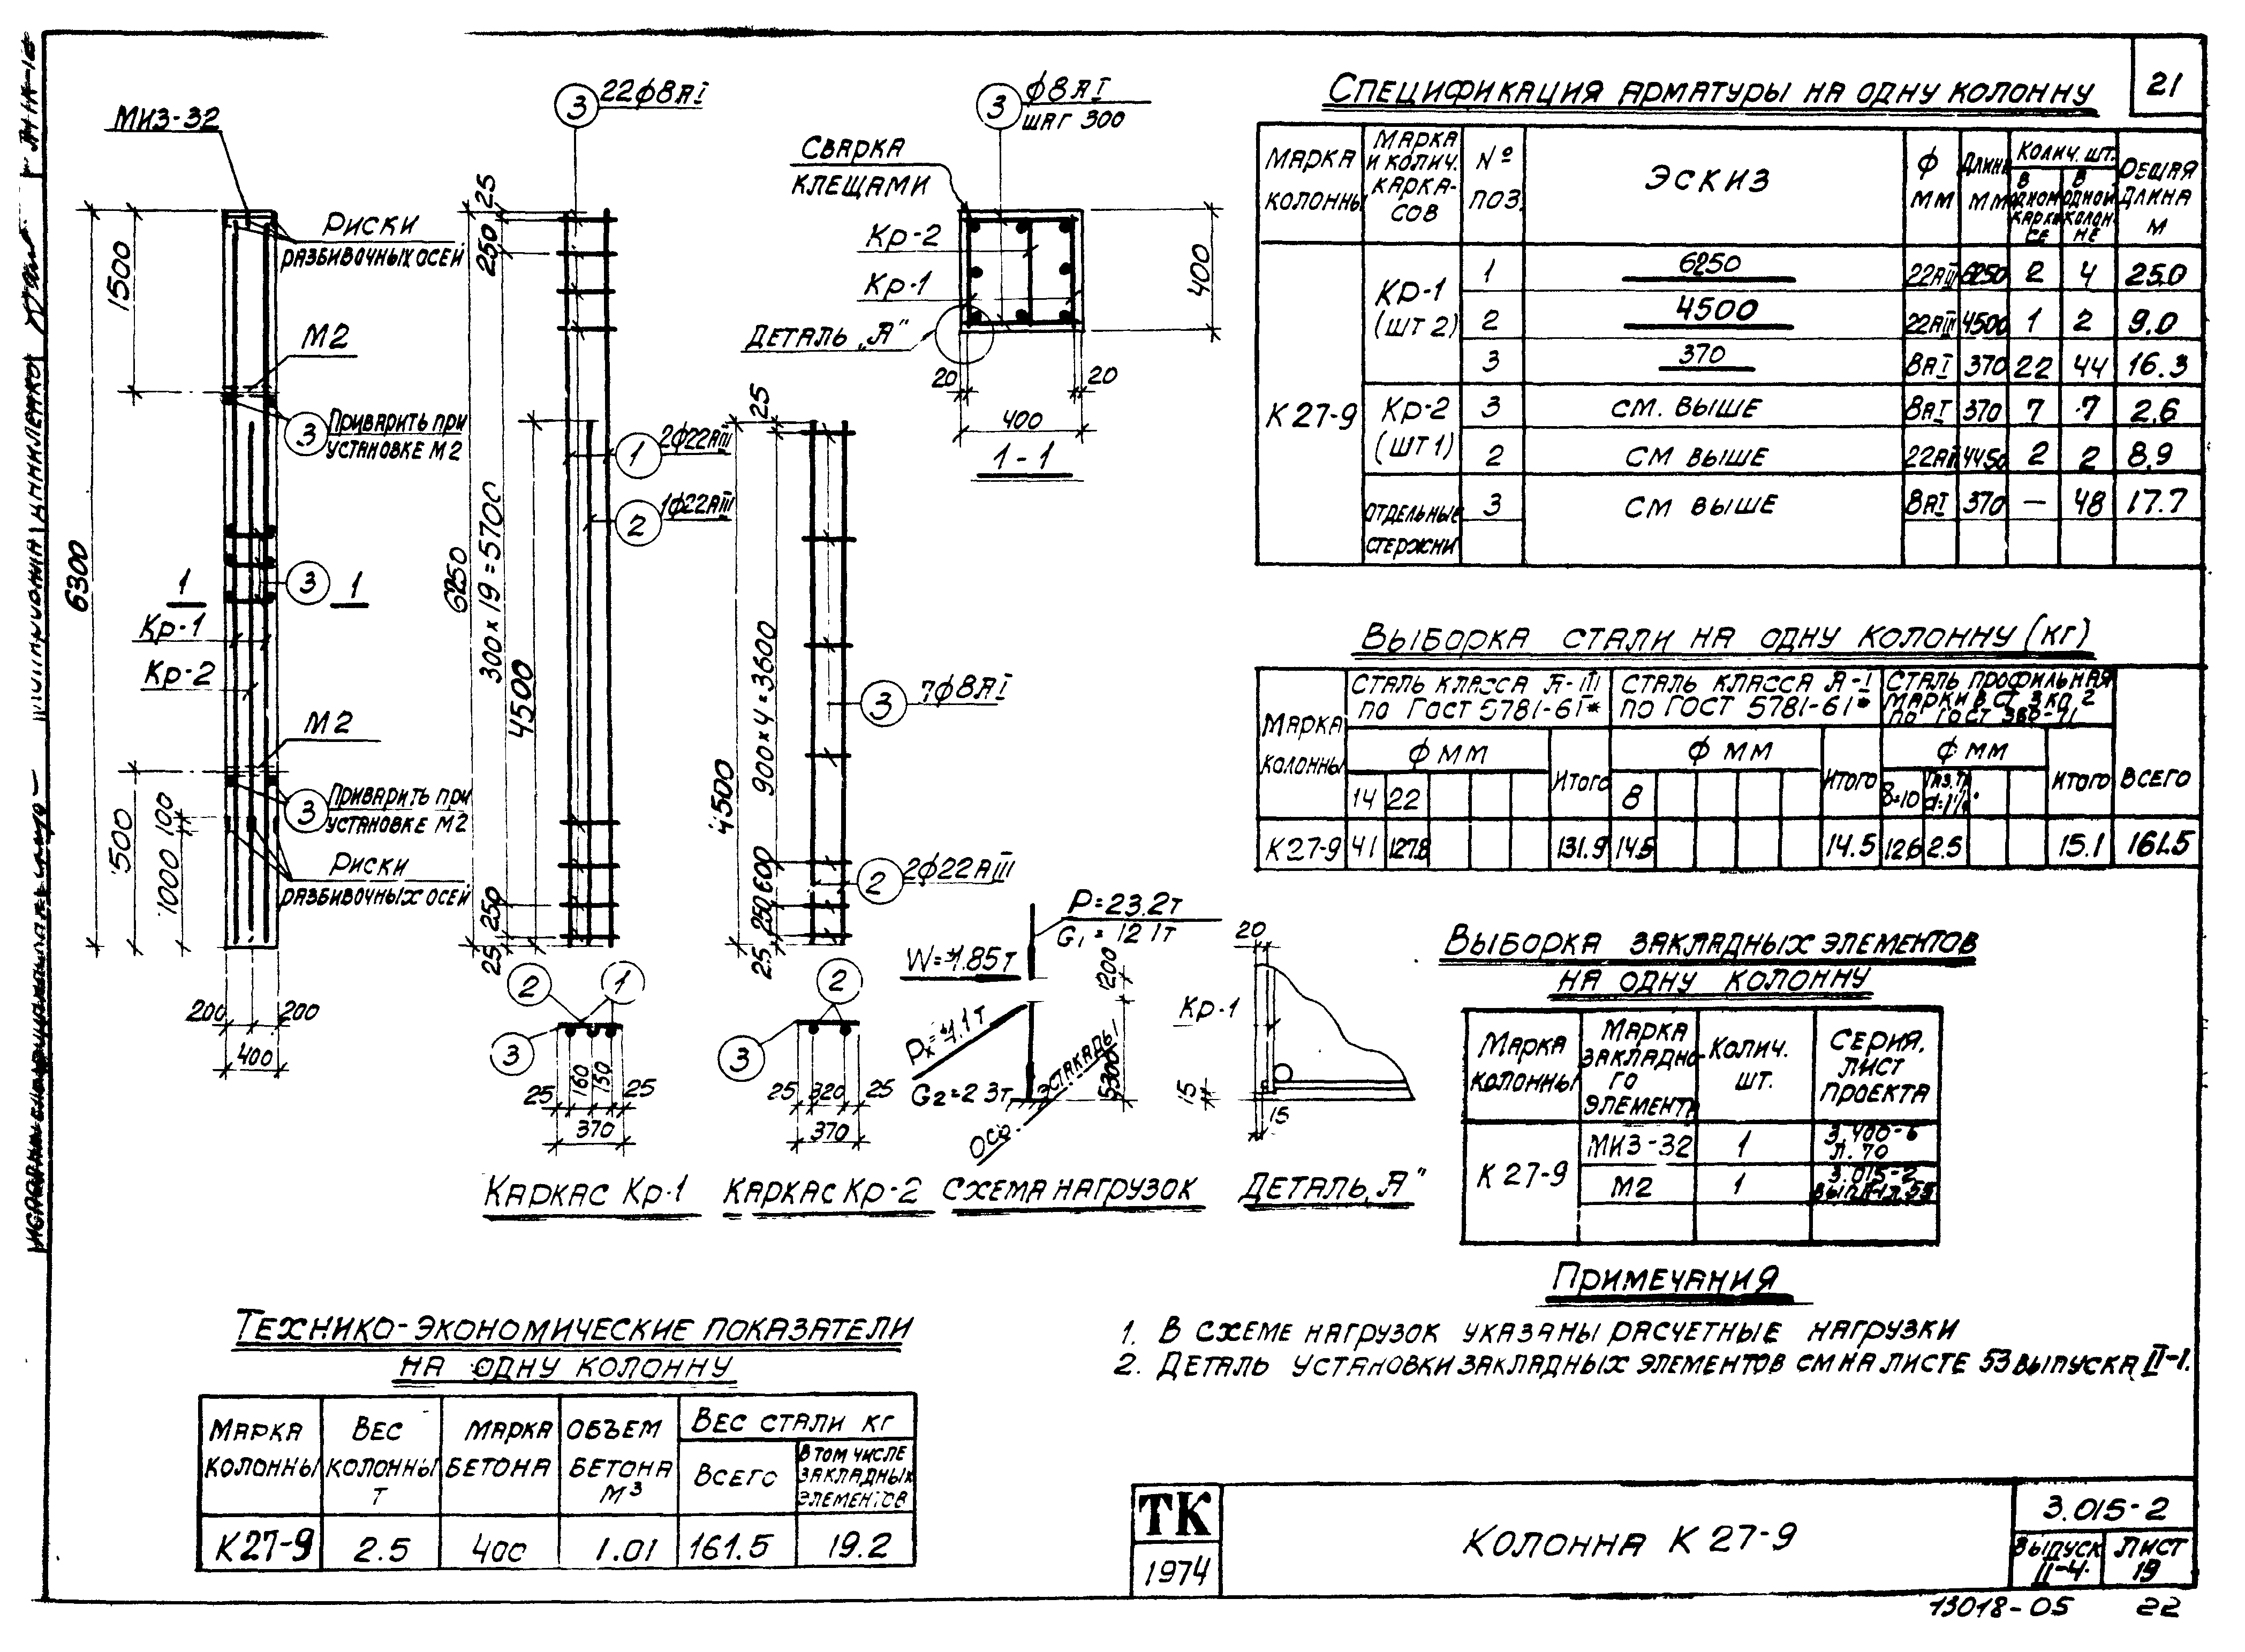 21
МИЗ-32
Риски
разбивочных осей
1500
М2
3 Приварить при
установке М2
6300
1 3 1
Кр-1
Кр-2
М2
3 Приварить при
установке М2
1500
1000 100
Риски
разбивочных осей
200 200
400
3 22ф8АI
25
250
6250
300×19=5700
4500
1 2ф22АIII
2 1ф22АIII
250
25
2 1
3
25 160 150 25
370
Каркас Кр-1
25
4500
900×4=3600
3 7ф8АI
600
250
25
2 2ф22АIII
2
3
25 320 25
370
Каркас Кр-2
3 ф8АI
шаг 300
Сварка
клещами
Кр-2
Кр-1
Деталь „А"
400
20 20
400
1-1
P=23.2т
G₁=12.1т
W=±1.85т
Pх=±1.1т
G₂=2.3т
1200
5300
Ось эстакады
Схема нагрузок
20
Кр-1
15
15
Деталь „А"
Спецификация арматуры на одну колонну
Марка колонны | Марка и колич. каркасов | № поз. | Эскиз | ф мм | Длина мм | Колич. шт. | в одном каркасе | в одной колонне | Общая длина м
К27-9 | Кр-1 (шт 2) | 1 | 6250 | 22АIII | 6250 | 2 | 4 | 25.0
2 | 4500 | 22АIII | 4500 | 1 | 2 | 9.0
3 | 370 | 8АI | 370 | 22 | 44 | 16.3
Кр-2 (шт 1) | 3 | см. выше | 8АI | 370 | 7 | 7 | 2.6
2 | см выше | 22АIII | 4450 | 2 | 2 | 8.9
Отдельные стержни | 3 | см выше | 8АI | 370 | — | 48 | 17.7
Выборка стали на одну колонну (кг)
Марка колонны | Сталь класса А-III по ГОСТ 5781-61* | Сталь класса А-I по ГОСТ 5781-61* | Сталь профильная марки В Ст 3 кп 2 по ГОСТ 380-71 | Всего
ф мм | Итого | ф мм | Итого | ф мм | Итого
14 | 22 | 8 | δ=10 | Газ.тр.
К27-9 | 4.1 | 127.8 | 131.9 | 14.5 | 14.5 | 12.6 | 2.5 | 15.1 | 161.5
Выборка закладных элементов
на одну колонну
Марка колонны | Марка закладного элемента | Колич. шт. | Серия, лист проекта
К27-9 | МИЗ-32 | 1 | 3.400-6 л.70
М2 | 1 | 3.015-2
Примечания
1. В схеме нагрузок указаны расчетные нагрузки
2. Деталь установки закладных элементов см на листе 53 выпуска II-1.
Технико-экономические показатели
на одну колонну
Марка колонны | Вес колонны т | Марка бетона | Объем бетона м³ | Вес стали кг | Всего | В том числе закладных элементов
К27-9 | 2.5 | 400 | 1.01 | 161.5 | 19.2
ТК
1974
Колонна К 27-9
3.015-2
Выпуск II-4.
Лист 19
13018-05 22